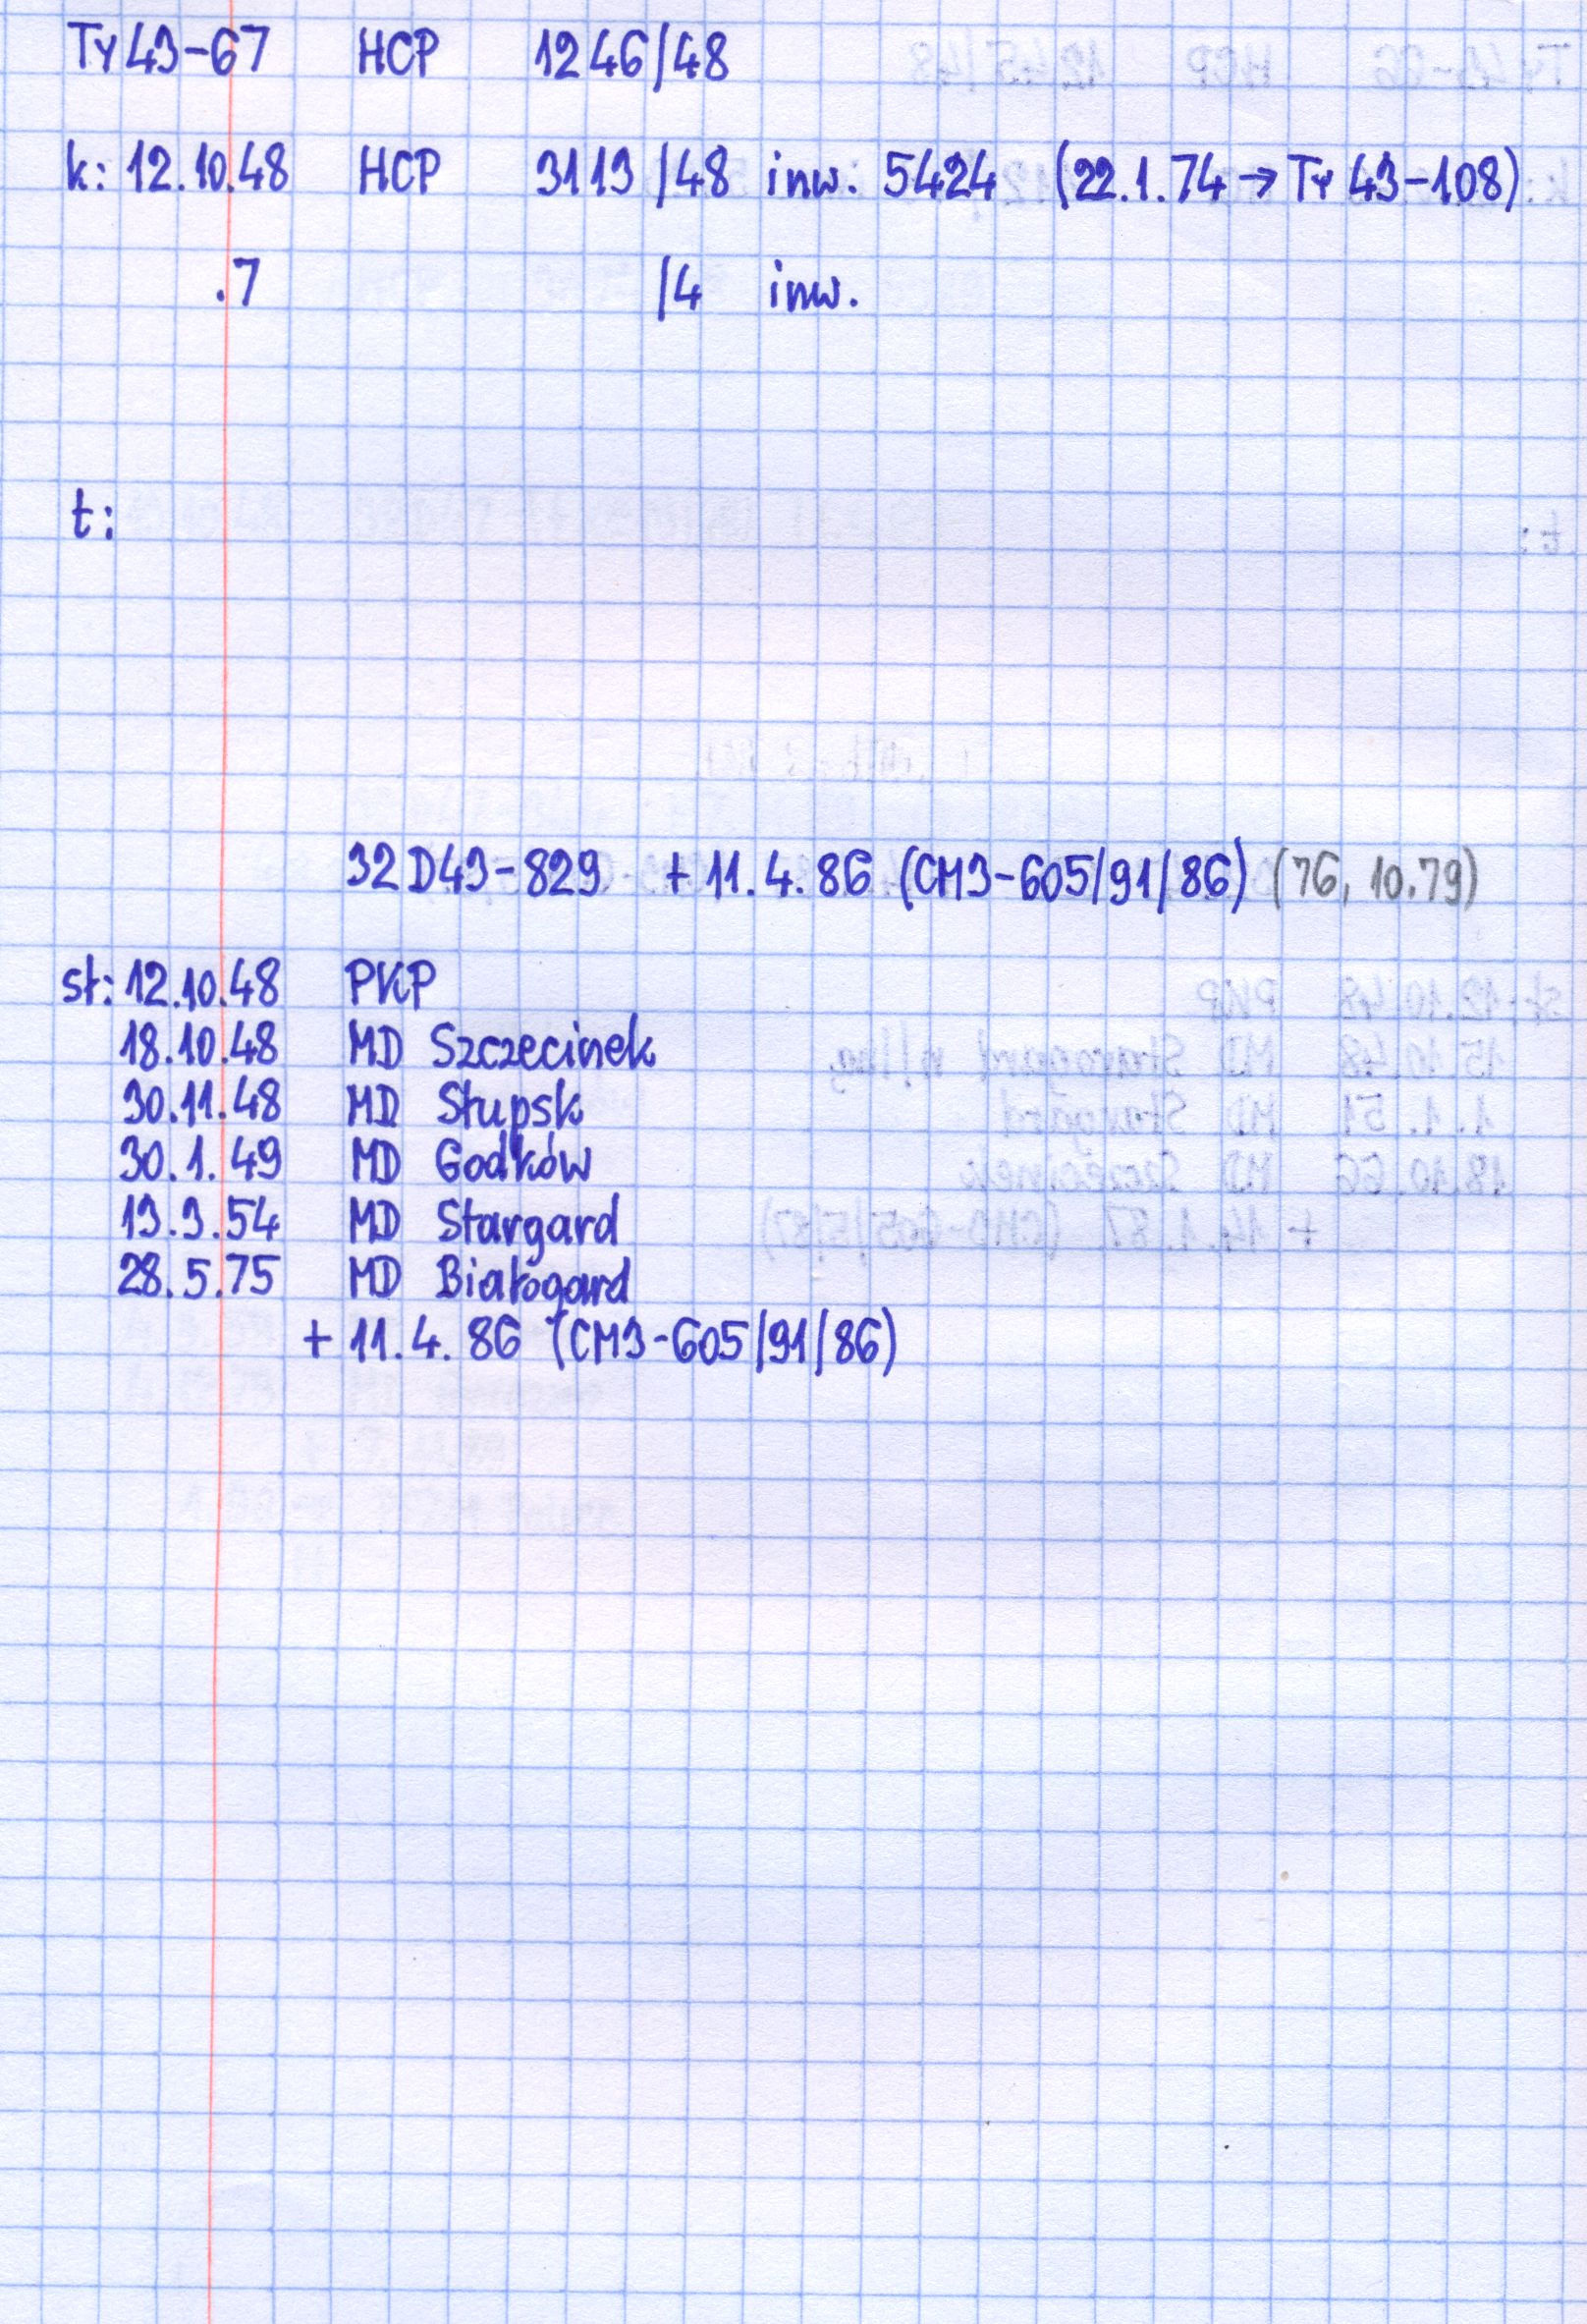 Ty43-67 HCP 1246/48
k: 12.10.48 HCP 3113/48 inw. 5424 (22.1.74 → Ty43-108)
.7 /4 inw.
t:
32D43-829 + 11.4.86 (CM3-605/91/86) (76, 10.79)
st: 12.10.48 PKP
18.10.48 MD Szczecinek
30.11.48 MD Słupsk
30.1.49 MD Godków
13.3.54 MD Stargard
28.5.75 MD Białogard
+ 11.4.86 (CM3-605/91/86)